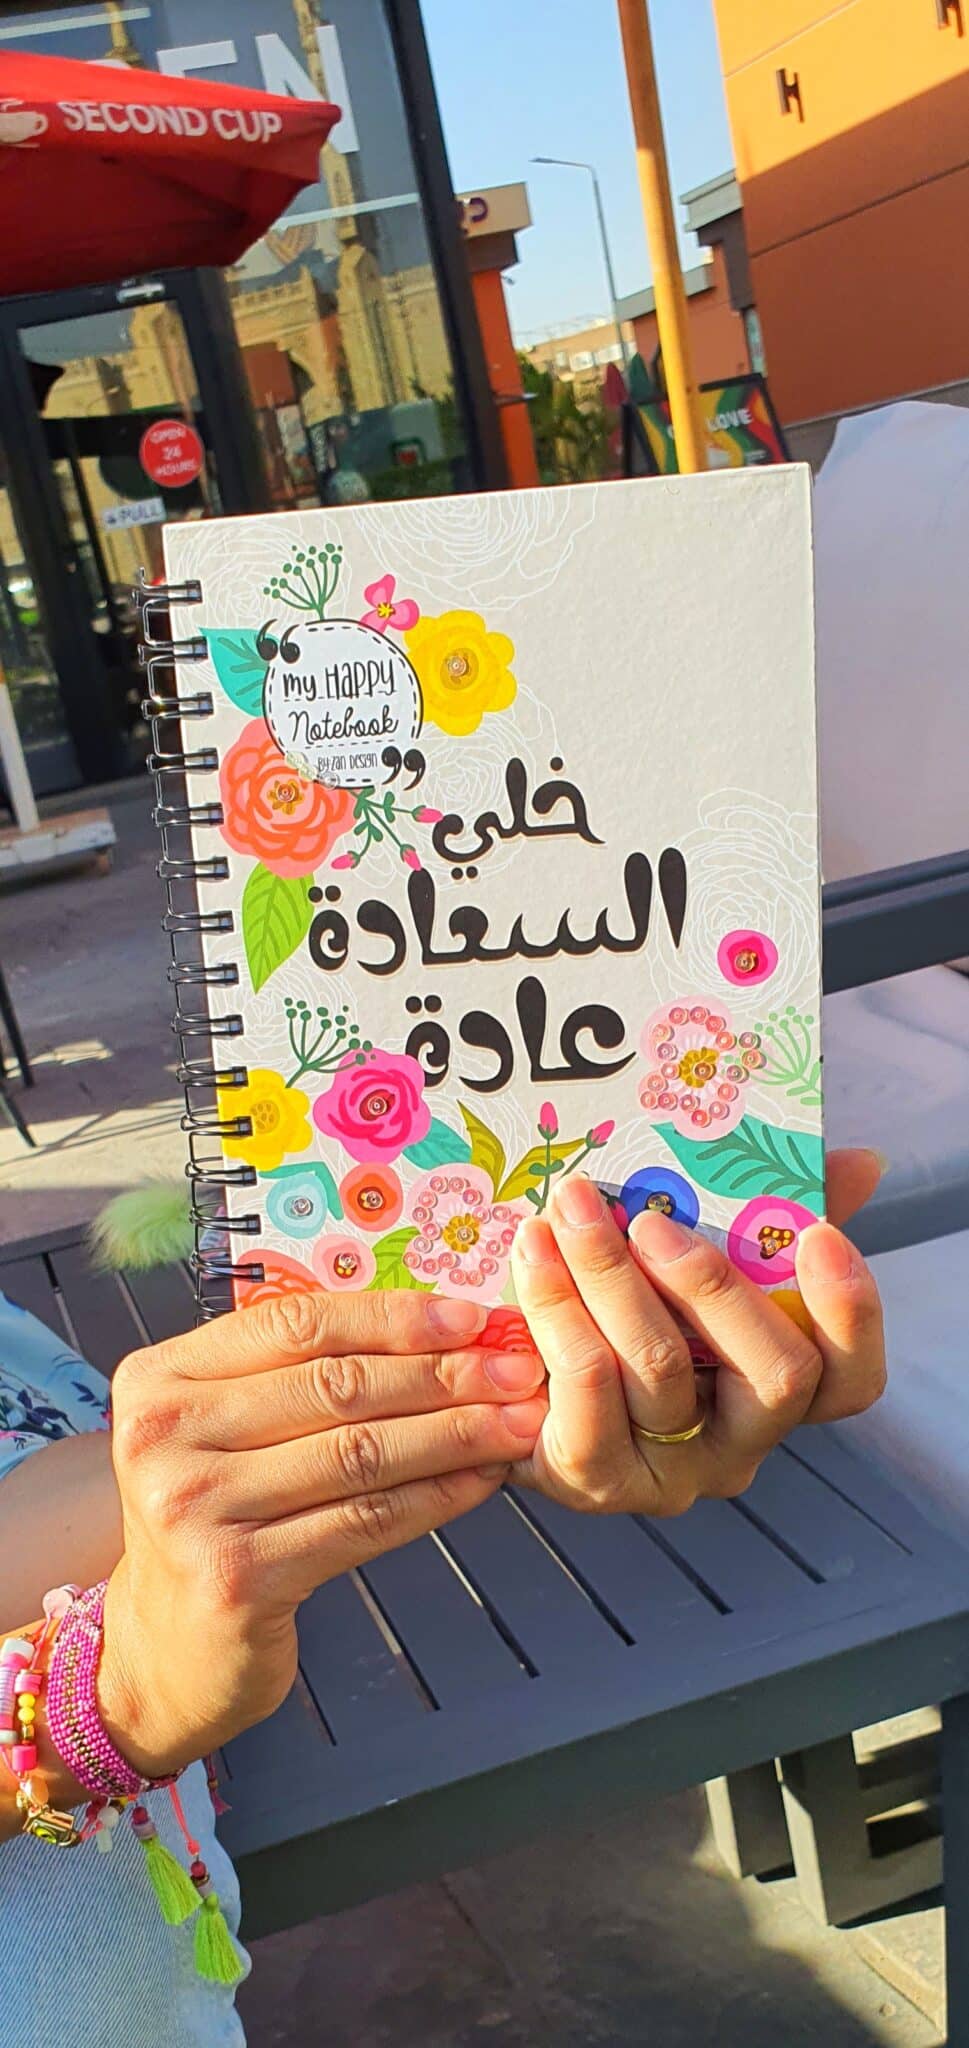 SECOND CUP
OPEN
24
HOURS
PULL
LOVE
my HAPPY
Notebook
By:Zan Design
خلي
السعادة
عادة